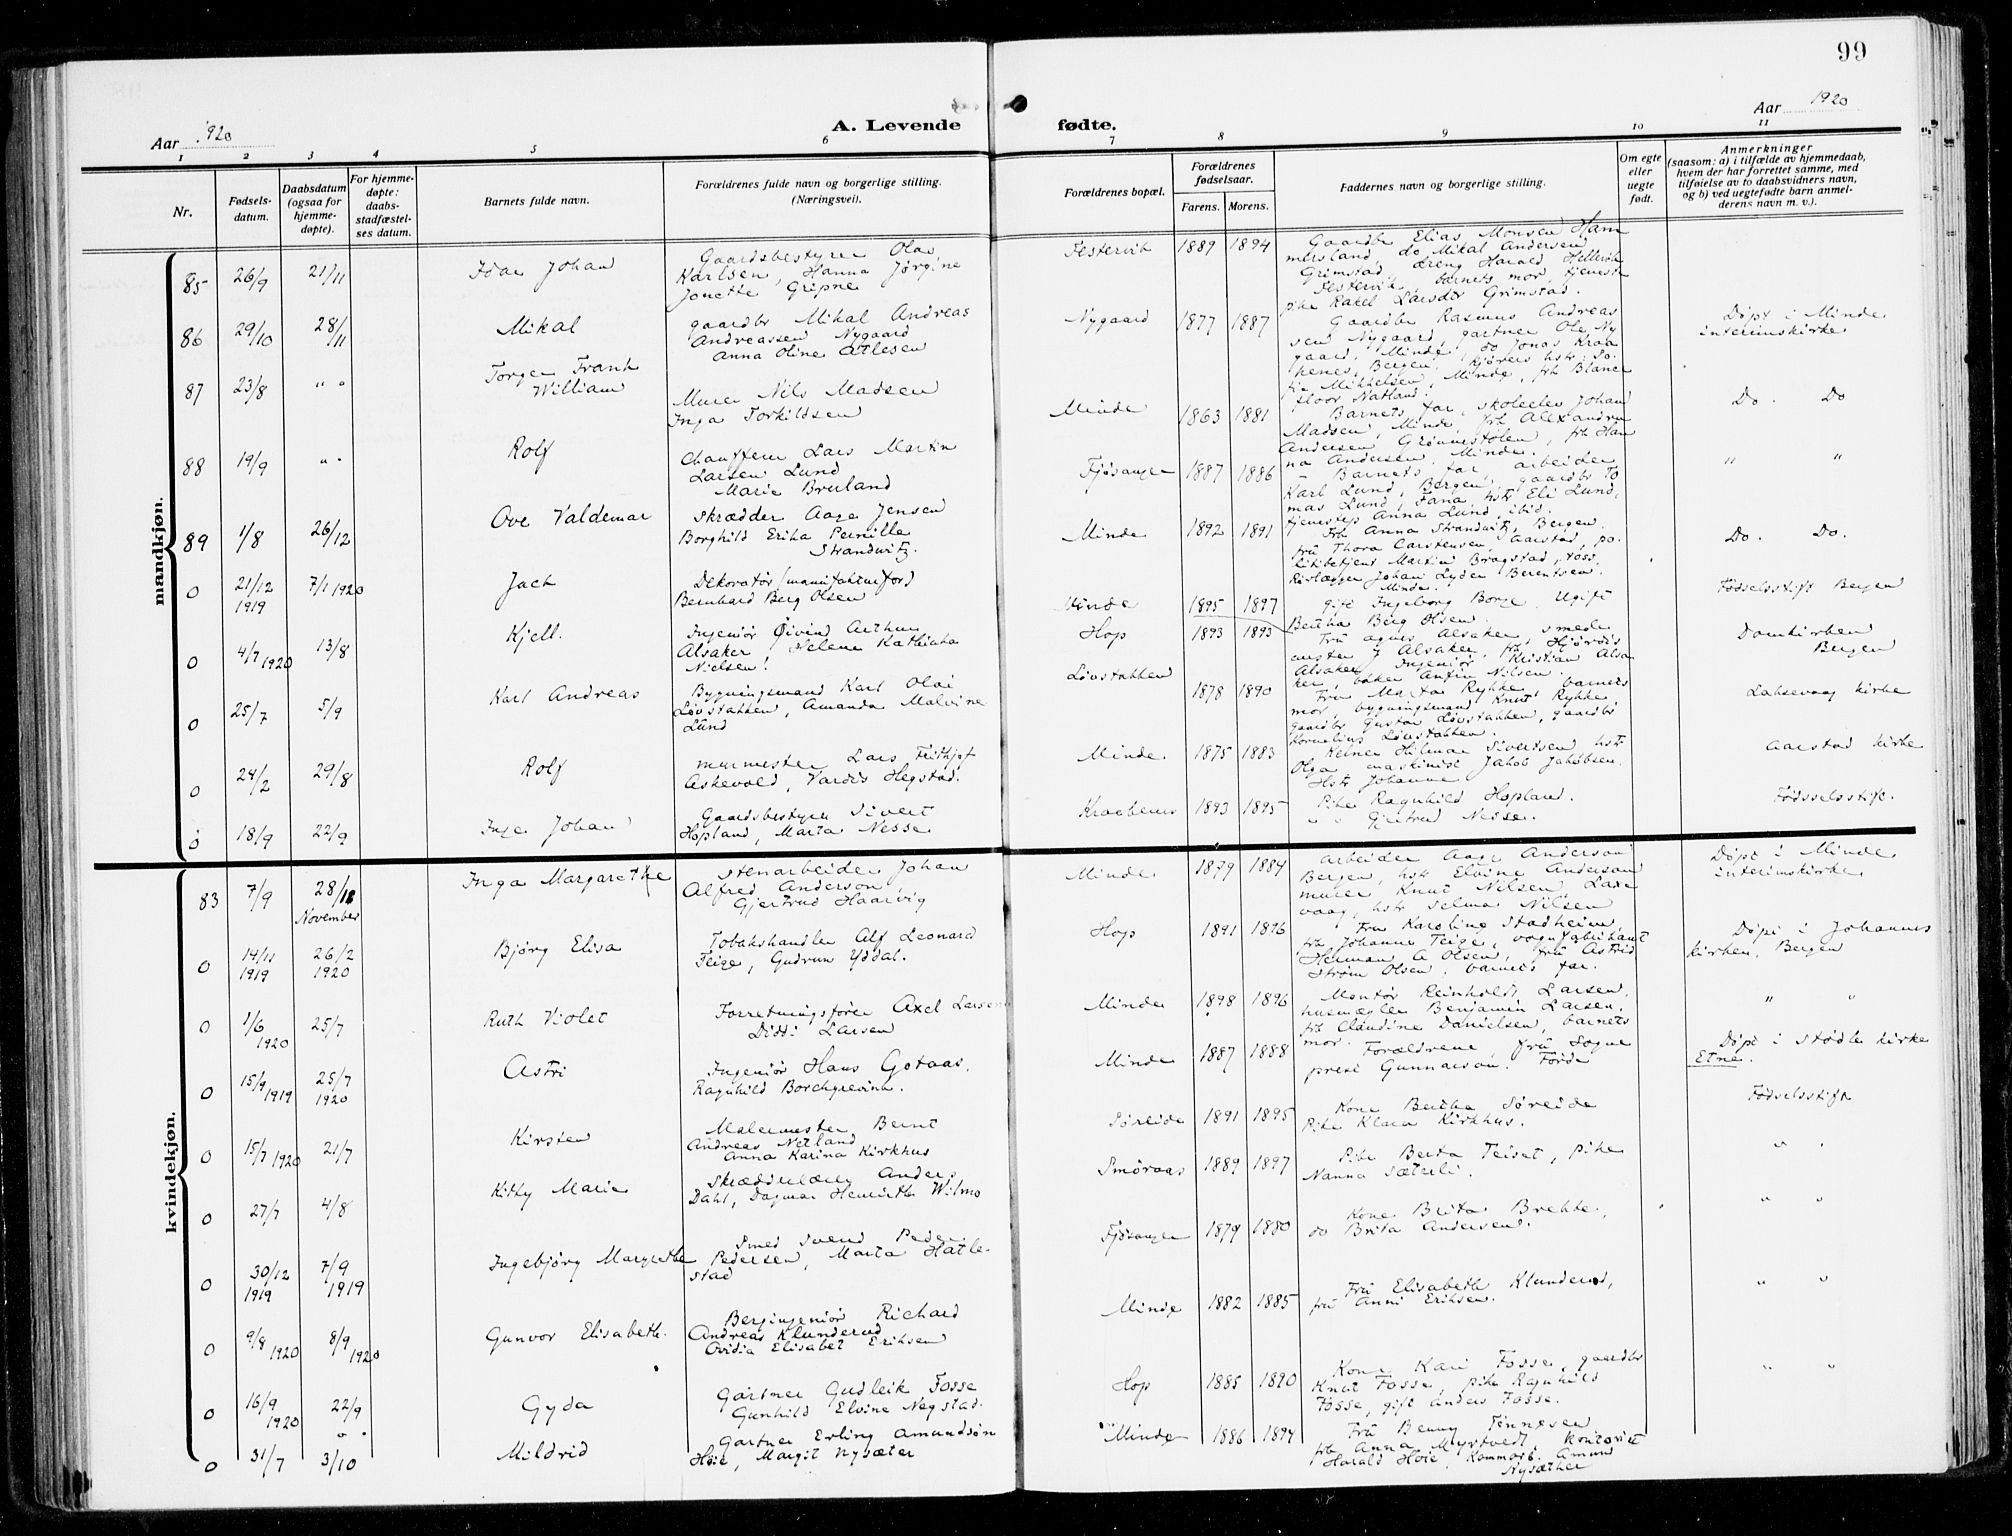 99
Aar 1920
A. Levende fødte.
Aar 1920
1 2 3 4 5 6 7 8 9 10 11
Nr.
Fødsels-
datum.
Daabsdatum
(ogsaa for
hjemme-
døpte).
For hjemme-
døpte:
daabs-
stadfæstel-
ses datum.
Barnets fulde navn.
Forældrenes fulde navn og borgerlige stilling.
(Næringsvei).
Forældrenes bopæl.
Forældrenes
fødselsaar.
Farens. Morens.
Faddernes navn og borgerlige stilling.
Om egte
eller
uegte
født.
Anmerkninger
(saasom: a) i tilfælde av hjemmedaab,
hvem der har forrettet samme, med
tilføielse av to daabsvidners navn,
og b) ved uegtefødte barn anmel-
derens navn m. v.).
mandkjøn.
85 26/9 21/11
Johan
Gaardsbestyrer Olai
Karlsen, Hanna Jørgine
Jonette Gripne
Festervik 1889 1894
Gaardbr Elias Monsen Ham
mersland, do Mikal Andersen
Grimstad, dreng Harald Hellevik
Festervik, barnets mor, tjeneste
pike Rakel Larsdtr Grimstad.
86 29/10 28/11
Mikal
gaardbr Mikal Andreas
Andreassen Nygaard
Anna Oline Atlesen
Nygaard 1877 1887
Gaardbr Rasmus Andreas
sen Nygaard, gartner Ole Ny
gaard, Minde, do Jonas Kraa
kenes, Bergen, kjørers hstr So.
fie Mikkelsen, Minde, frk Blance
floor Natland.
Døpt i Minde
interimskirke
87 23/8 " "
Torger Frank
William
Murer Nils Madsen
Inga Torkildsen
Minde 1863 1881
Barnets far, skoleelev Johan
Madsen, Minde, frk Alexandra
Andersen Grønnestølen, frk Han
na Andersen Minde.
Do. Do
88 19/9 " "
Rolf
Chauffeur Lars Martin
Larsen Lund
Marie Bruland
Fjøsanger 1887 1886
Barnets far, arbeider
Karl Lund, Bergen, gaardbr To
mas Lund, Fana, hstr Eli Lund,
tjenestep Anna Lund, ibid.
" "
89 1/8 26/12
Ove Valdemar
Skrædder Aage Jensen
Borghild Erika Pernille
Strandvitz.
Minde 1892 1891
Frk Anna Strandvitz, Bergen.
fru Thora Carstensen, Aarstad, po.
litibetjent Martin Bragstad,
Johan Lyder Berentsen.
Minde.
Do. Do.
0 21/12 1919 7/1 1920
Jack
Dekoratør (manufakturfor)
Bernhard Berg Olsen
Minde 1895 1897
gift Ingeborg Borge. Ugift
Bertha Berg Olsen.
Fødselsstift Bergen
0 4/7 1920 13/8
Kjell.
Ingeniør Øivind Arthur
Alsaker, Helene Kathinka
Nielsen!
Hop 1893 1893
Fru Agnes Alsaker, smede
mester J Alsaker, frk Hjørdis
Alsaker, Ingeniør Kristian Alsa
ker, bøker Anfin Nilsen.
Domkirken
Bergen
0 25/7 5/9
Karl Andreas
Bygningsmand Karl Olai
Løvstakken, Amanda Malvine
Lund
Løvstakken 1878 1890
Fru Marta Rykke, barnets
mor, bygningsmand Knut Rykke
gaardbr Gustav Løvstakken, gaardbr
Kornelius Løvstakken.
Laksevaag kirke
0 24/2 29/8
Rolf
murmester Lars Fridtjof
Askevold, Vardis Hegstad.
Minde 1875 1883
Kelner Hilmar Sivertsen hstr
Olga maskinist Jakob Jakobsen.
Hstr Johanne
Aarstad kirke
0 18/9 22/9
Inge Johan
Gaardsbestyrer Sivert
Hopland, Marta Nesse
Kraakenes 1893 1895
Pike Ragnhild Hopland.
" " Gjertrud Nesse.
Fødselsstift.
kvindekjøn.
83 7/9 28/11
November
Inga Margarethe
Stenarbeider Johan
Alfred Anderson
Gjertrud Haarvig
Minde 1879 1884
Arbeider Aage Anderson
Bergen, hstr Elvine Anderson
murer Knut Nilsen Laxe
vaag, hstr Selma Nilsen
Døpt i Minde
interimskirke
0 14/11 1919 26/2 1920
Bjørg Elisa
Tobakshandler Alf Leonard
Teige, Gudrun Yddal.
Hop 1891 1896
Fru Karoline Stadheim,
frk Johanne Teige, vognfabrikant
Herman A Olsen, fru Astrid
Strøm Olsen, barnets far.
Døpt i Johannes
kirken, Bergen
0 1/6 1920 25/7
Ruth Violet
Forretningsfører Axel Larsen
Diddi Larsen
Minde 1898 1896
Montør Reinholdt Larsen,
husmægler Benjamin Larsen,
frk Claudine Danielsen, barnets
mor.
" "
0 15/9 1919 25/7 1920
Astri
Ingeniør Hans Gotaas.
Ragnhild Borchgrevink.
Minde 1887 1888
Forældrene, fru Sogne
prest Gunnarson, Førde
Døpt i Stødle kirke
Etne.
0 15/7 1920 21/7
Kirsten
Malermester Bernt
Andreas Netland
Anna Karina Kirkhus
Søreide 1891 1895
Kone Bertha Søreide
Pike Klara Kirkhus.
Fødselsstift
0 27/7 4/8
Kitty Marie
Anders
Dahl, Dagmar Henriette Wilmo
Smøraas 1889 1897
Pike Berta Teiset, pike
Nanna Sæterli.
" "
0 30/12 1919 7/9 1919
Ingebjørg Margrethe
Smed Svend Peder
Pedersen, Marta Hatle-
stad
Fjøsanger 1879 1880
Kone Brita Brekke,
do Brita Andersen.
" "
0 9/8 1920 8/9 1920
Gunvor Elisabeth.
Bergingeniør Richard
Andreas Klunderud
Ovidia Elisabet Eriksen
Minde 1882 1885
Fru Elisabeth Klunderud,
fru Anni Eriksen.
" "
0 16/9 1920 22/9
Gyda
Gartner Gudleik Fosse
Gunhild Elvine Negstad.
Hop 1885 1890
Kone Kari Fosse, gaardbr
Knut Fosse, pike Ragnhild
Fosse, gift Anders Fosse.
" "
0 31/7 3/10
Mildrid
Gartner Erling Amundsøn
Høie, Margit Nysæter
Minde 1886 1894
Fru Benny Tønnesen
frk Anna Myrtvedt, kontorist
Harald Høie, Kommorb. Amund
Nysæther